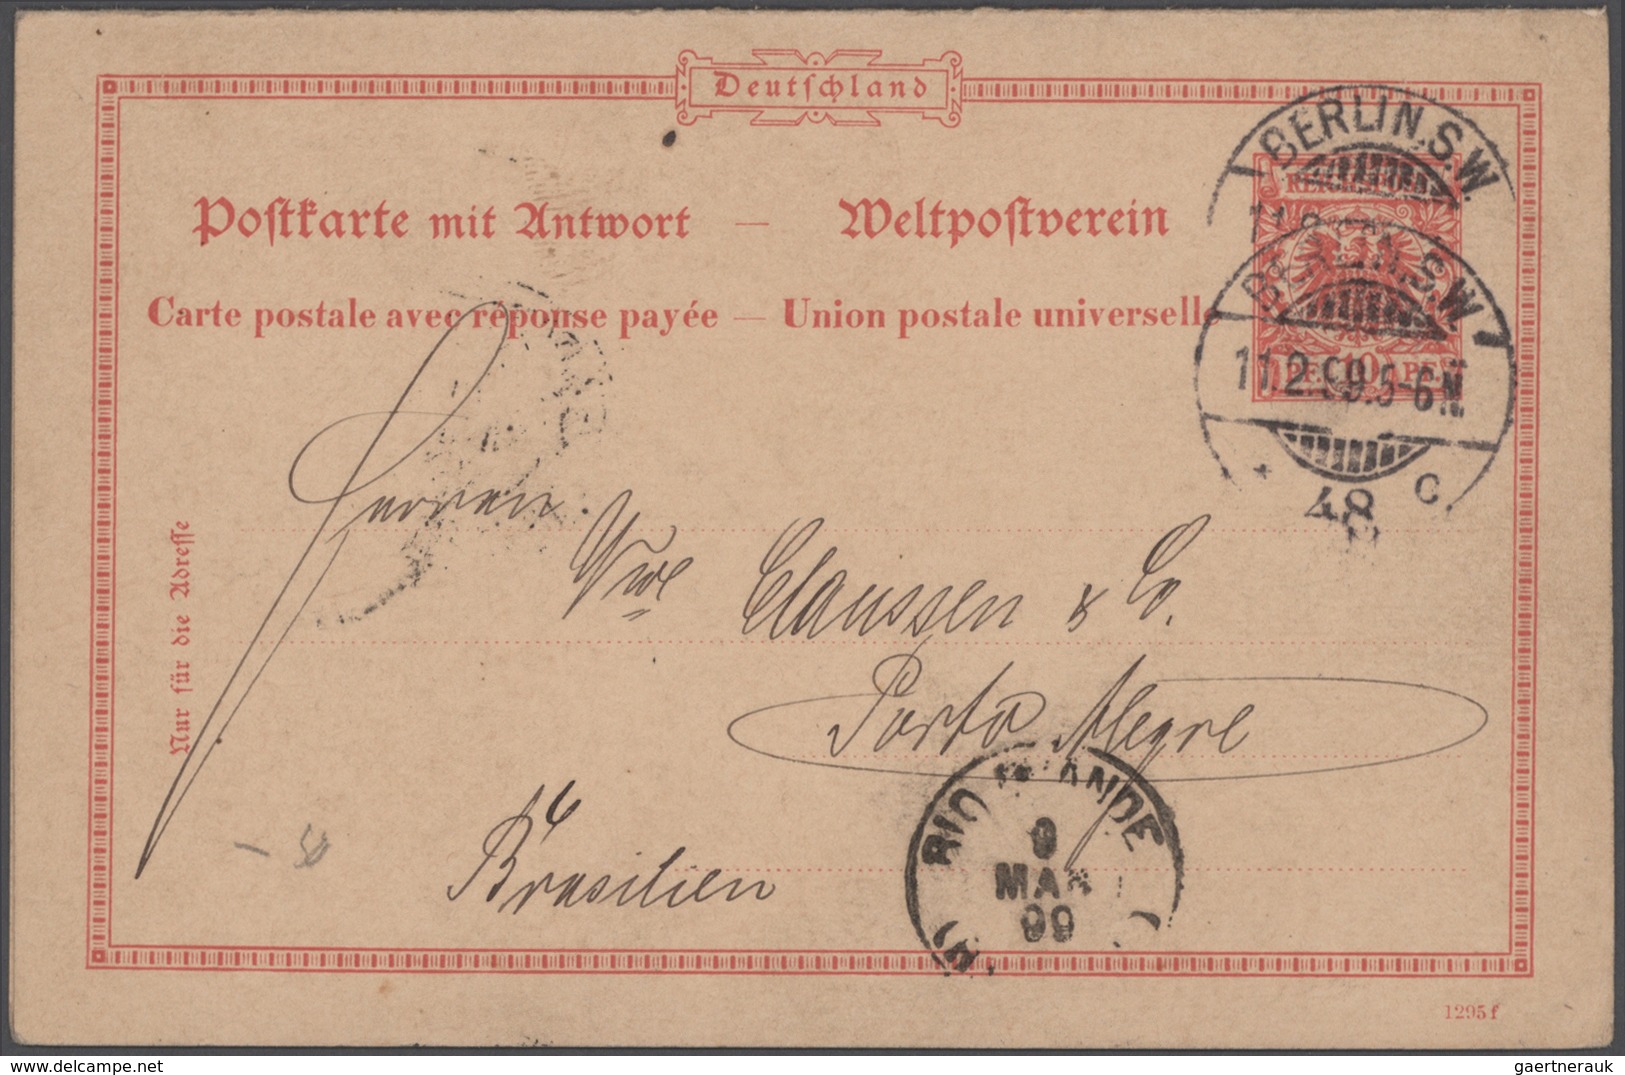 Deutschland
Postkarte mit Antwort — Weltpostverein
Carte postale avec réponse payée — Union postale universelle
REICHSPOST
PF. 10 PF.
BERLIN.S.W.
BERLIN.S.W.
11.2.99.5-6N.
* 48 C
Herren
Claussen & Co.
Porto Alegre
Brasilien
Nur für die Adresse
RIO GRANDE
9
MAR
99
- 50
1295 f
gaertnerauk